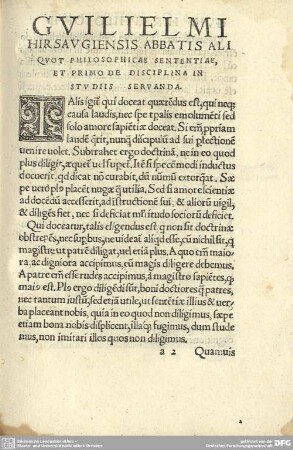 GVILIELMI
HIRSAVGIENSIS ABBATIS ALI
QVOT PHILOSOPHICAE SENTENTIAE,
ET PRIMO DE DISCIPLINA IN
STVDIIS SERVANDA.
TAlis igit̃ qui doceat quærẽdus est, qui neq;
causa laudis, nec spe tpalis emolumẽti sed
solo amore sapiẽtiæ doceat. Si em̃ ppriam
laudẽ q̃rit, nunq̃ discipulũ ad sui plectionẽ
venire volet. Subtrahet ergo doctrinã, ne in eo quod
plus diligit, æquet vel supet. Itẽ si spe cõmodi inductus
docuerit, qd dicat nõ curabit, dũ nũmũ extorq̃at. Sæ
pe uero pl9 placẽt nugæ q̃ utilia. Sed si amore sciẽtiæ
ad docẽdũ accesserit, ad istructionẽ sui, & aliorũ uigil,
& diligẽs fiet, nec si deficiat ml̃titudo sociorũ deficit.
Qui doceatur, talis eligendus est q non sit doctrinæ
obstrepẽs, nec supbus, ne uideat̃ aliqd esse, cũ nichil sit, q
magistrũ ut patrẽ diligat, uel etiã plus. A quo em̃ maio
ra, ac digniora accipimus, eũ magis diligere debemus.
A patre em̃ esse rudes accipimus, á magistro sapiẽtes, q
mai9 est. Pl9 ergo diligẽdi sũt, boni doctores q̃ patres,
nec tantum iustũ, sed etiã utile, ut sentẽtiæ illius & uer,
ba placeant nobis, quia in eo quod non diligimus, sæpe
etiam bona nobis displicent, illaq; fugimus, dum stude
mus, non imitari illos quos non diligimus.
a 2 Quamuis
4